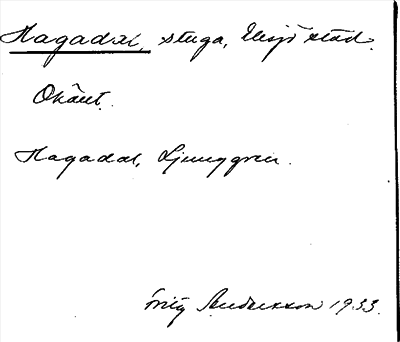 Hagadal, stuga, Eksjö stad.
Okänt.
Hagadal, Ljunggren.
Fritz Andersson 1933.